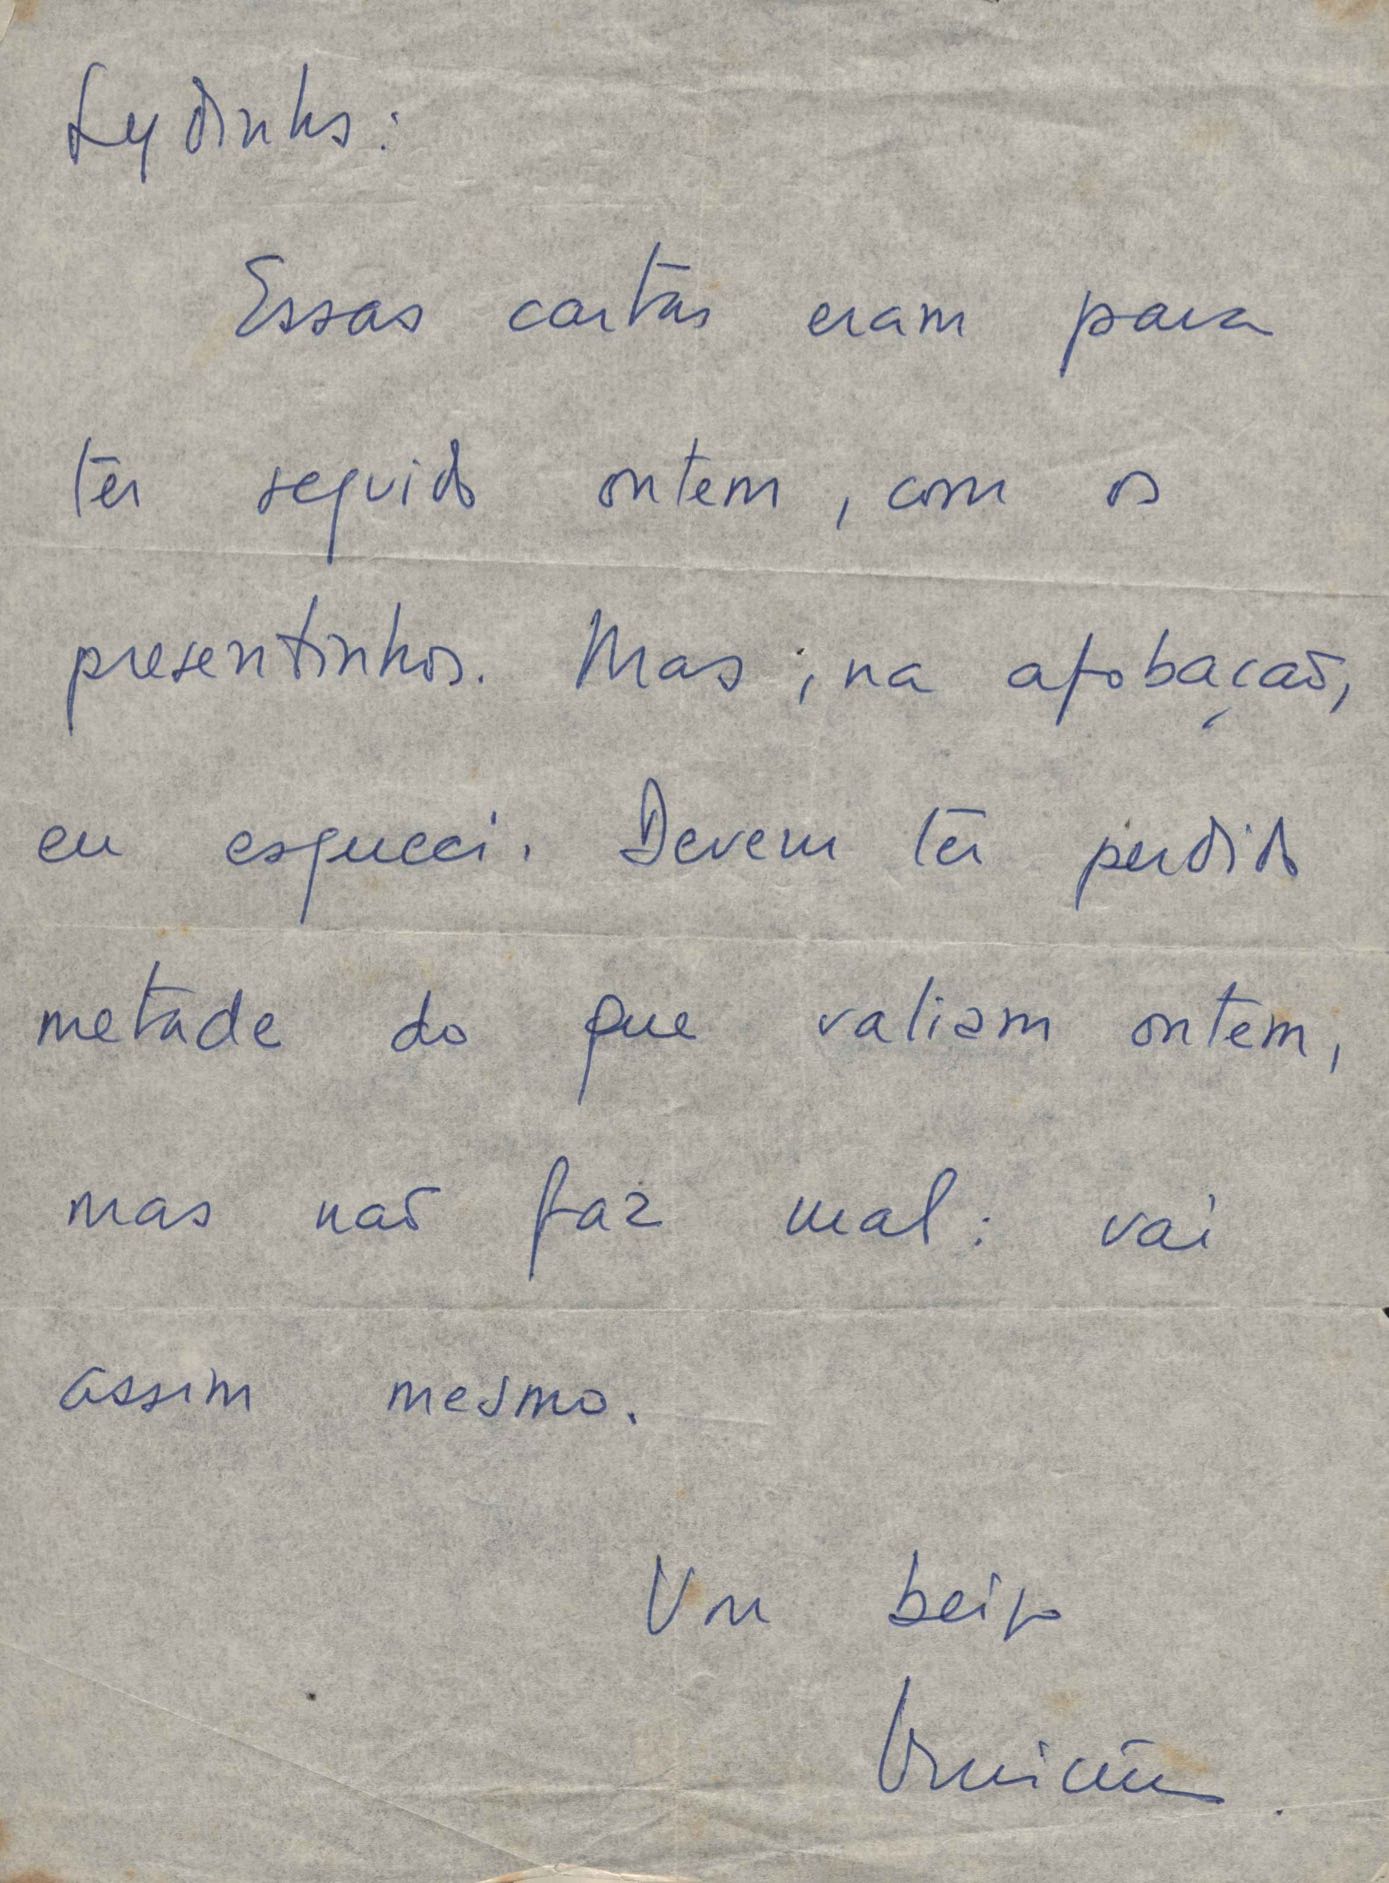 Lydinha:
Essas cartas eram para
ter seguido ontem, com os
presentinhos. Mas, na afobação,
eu esqueci. Devem ter perdido
metade do que valiam ontem,
mas não faz mal: vai
assim mesmo.
Um beijo
Vinicius.